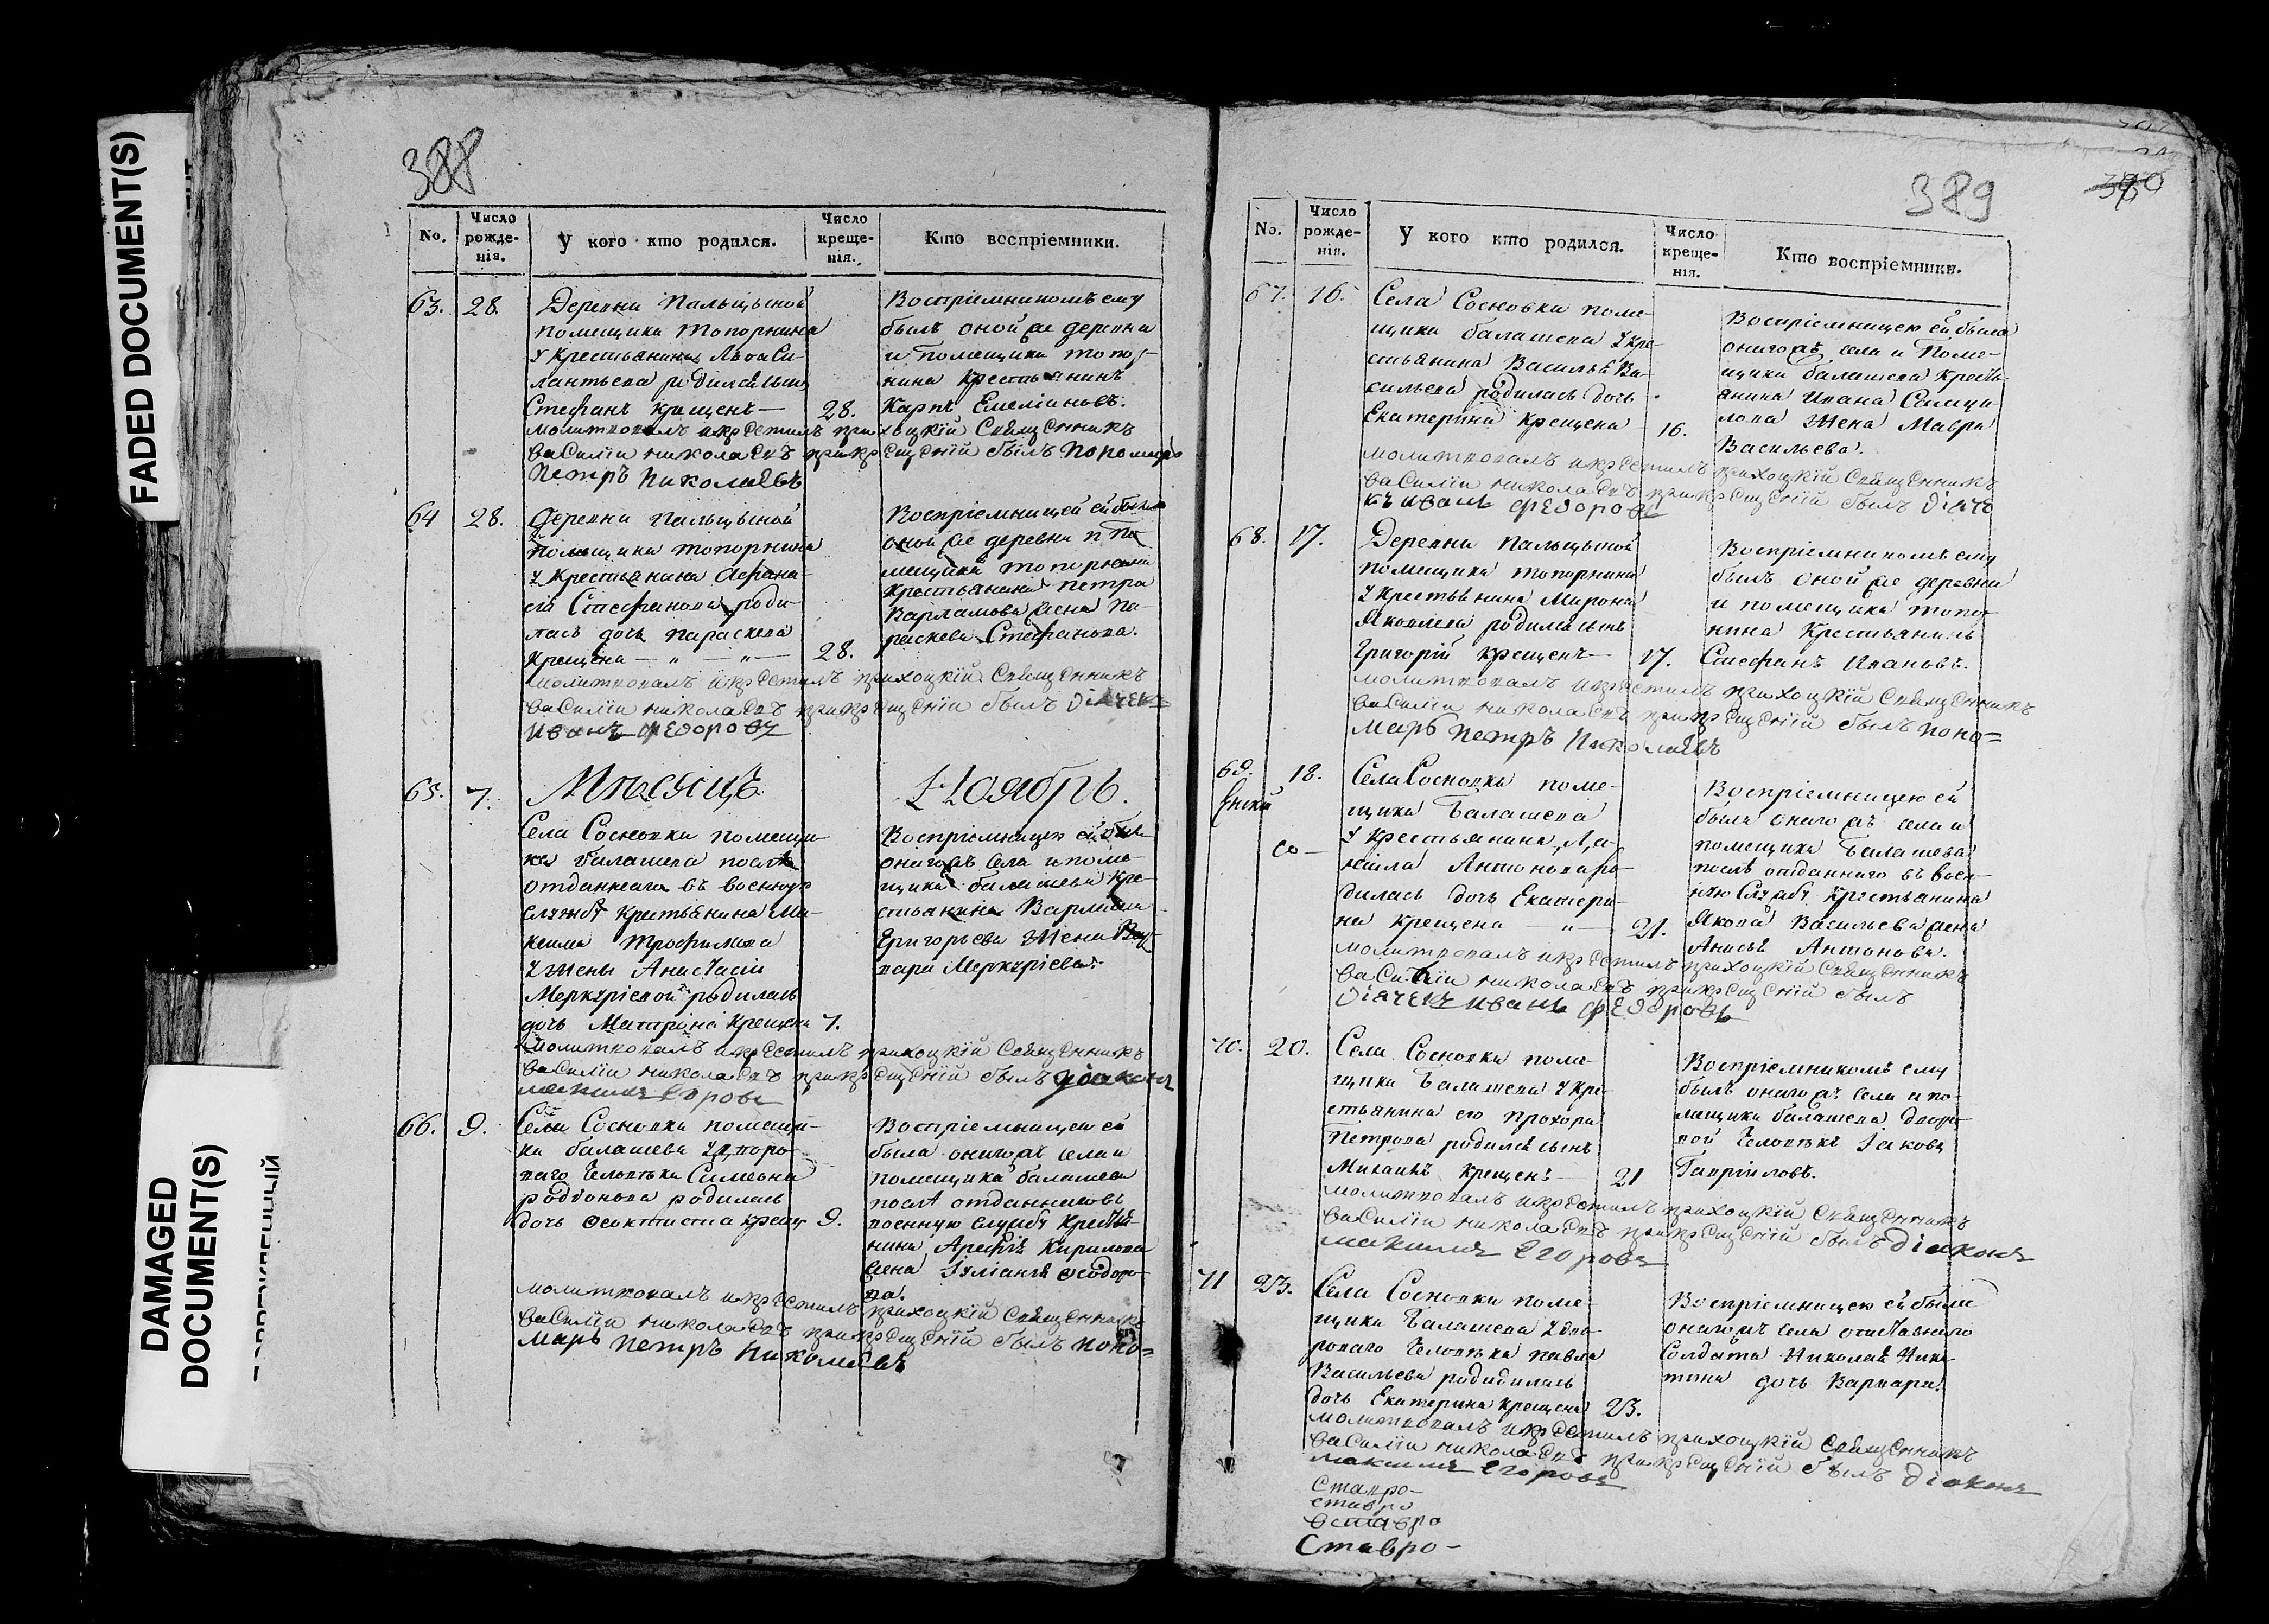 FADED DOCUMENT(S)
DAMAGED
DOCUMENT(S)
388
No.
Число рожде-нія.
У кого кто родился.
Число креще-нія.
Кто воспріемники.
63. 28.
Деревни Пальцыной
помещика Топорнина
у крестьянина
лантьева родился сынъ
Стефанъ крещенъ — 28.
Воспріемникомъ ему
былъ оной же деревни
и помещика Топор-
нина крестьянинъ
Карпъ Емеліановъ.
молитвовалъ и крестилъ приходкій священникъ
Василіи Николаевъ при крещеніи былъ пономарь
Петръ Николаевъ
64 28.
Деревни Пальцыной
помещика Топорнина
у крестьянина Афана-
сія Стефанова роди-
лась дочь Параскева
крещена — „ — „ — 28.
Воспріемницей ей была
оной же деревни и по-
мещика Топорнина
крестьянина Петра
Варламова жена Па-
раскева Стефанова.
молитвовалъ и крестилъ приходкій священникъ
Василіи Николаевъ при крещеніи былъ діячекъ
Иванъ Федоровъ
65. 7.
Мѣсяцъ Ноябрь.
Села Сосновки помещи-
ка Балашева послѣ
отданнаго въ военную
службу крестьянина Ма-
ксима Трофимова
у жены Анастасіи
Меркуріевой родилась
дочь Матрона крещена 7.
Воспріемницею ей была
онагожъ села и поме-
щика Балашева кре-
стьянина Варлама
Григорьева жена Вар-
вара Меркуріева.
молитвовалъ и крестилъ приходкій священникъ
Василіи Николаевъ при крещеніи былъ діаконъ
Максимъ Егоровъ
66. 9.
Села Сосновки помещи-
ка Балашева у дворо-
ваго человѣка Симеона
Родіонова родилась
дочь Феоктиста крещ 9.
Воспріемницею ей
была онагожъ села и
помещика Балашева
послѣ отданнаго въ
военную службу крестья-
нина Арефія Кирилова
жена Іуліанія Феодоро-
ва.
молитвовалъ и крестилъ приходкій священникъ
Василіи Николаевъ при крещеніи былъ поно=
марь Петръ Николаевъ
389
390
No.
Число рожде-нія.
У кого кто родился.
Число креще-нія.
Кто воспріемники.
67. 16.
Села Сосновки поме-
щика Балашева у кре-
стьянина Василья Ва-
сильева родилась дочь
Екатерина крещена 16.
Воспріемницею ей была
онагожъ села и поме-
щика Балашева кресть-
янина Ивана Самуи-
лова жена Мавра
Васильева.
молитвовалъ и крестилъ приходкій священникъ
Василіи Николаевъ при крещеніи былъ діяче
къ Иванъ Федоровъ
68. 17.
Деревни Пальцыной
помещика Топорнина
у крестьянина Мирона
Яковлева родился сынъ
Григорій крещенъ — 17.
Воспріемникомъ ему
былъ оной же деревни
и помещика Топор-
нина крестьянинъ
Стефанъ Ивановъ.
молитвовалъ и крестилъ приходкій священникъ
Василіи Николаевъ при крещеніи былъ поно=
марь Петръ Николаевъ
69. 18.
Села Сосновки поме-
щика Балашева
у крестьянина Ми-
хаила Антонова ро-
дилась дочь Екатери-
на крещена — „ — 21.
Воспріемницею ей
была онагожъ села и
помещика Балашева
послѣ отданнаго въ воен-
ную службу крестьянина
Якова Васильева жена
Анисья Антонова.
молитвовалъ и крестилъ приходкій священникъ
Василіи Николаевъ при крещеніи былъ
діячекъ Иванъ Федоровъ
70. 20.
Села Сосновки поме-
щика Балашева у кре-
стьянина его Прохора
Петрова родился сынъ
Михаилъ крещенъ — 21
Воспріемникомъ ему
былъ онагожъ села и по-
мещика Балашева дворо-
вой человѣкъ Іаковъ
Гавріиловъ.
молитвовалъ и крестилъ приходкій священникъ
Василіи Николаевъ при крещеніи былъ діаконъ
Максимъ Егоровъ
71 23.
Села Сосновки поме-
щика Балашева у дво-
роваго человѣка Павла
Васильева родидилась
дочь Екатерина крещена 23.
Воспріемницею ей была
онагожъ села отставнаго
солдата Николая Ники-
тина дочь Варвара.
молитвовалъ и крестилъ приходкій священникъ
Василіи Николаевъ при крещеніи былъ діаконъ
Максимъ Егоровъ
Ставро-
ставро
Ставро-